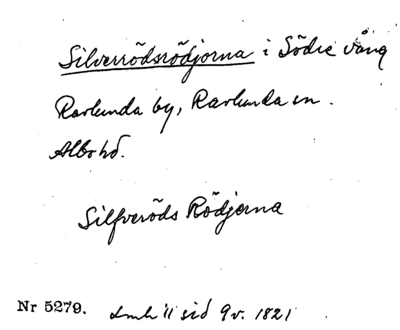 Silverrödsrödjorna i Södre vång
Ravlunda by, Ravlunda sn.
Albo hd.
Silfveröds Rödjorna
Nr 5279. Lmh 11 sid 9 v. 1821